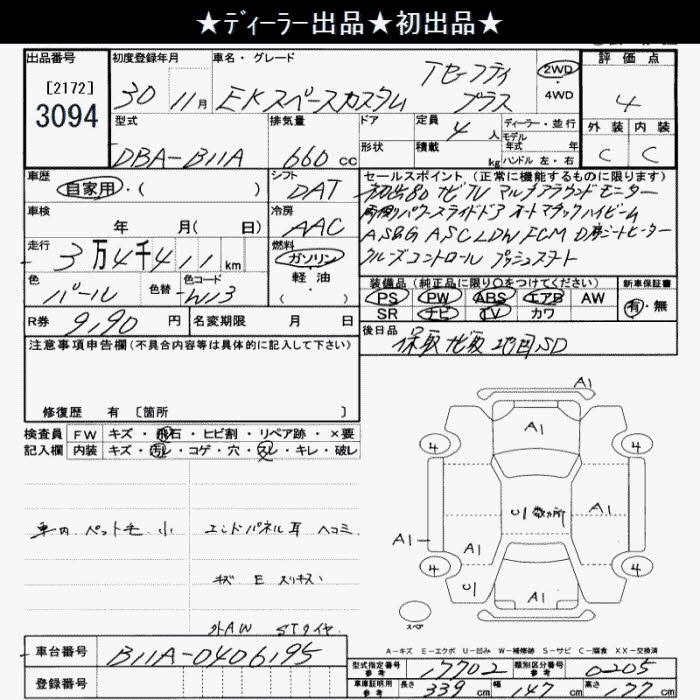 ★ディーラー出品★初出品★
出品番号
[2172]
3094
初度登録年月
30 11月
車名・グレード
EKスペースカスタム
Tセーフティ
プラス
2WD
・
4WD
評価点
4
外装 内装
C C
型式
DBA-B11A
排気量
660 cc
ドア
形状
定員
4 人
積載
kg
ディーラー・並行
モデル
年式 年
ハンドル 左・右
車歴
自家用・( )
シフト
DAT
車検
年 月( 日)
冷房
AAC
走行
3万4千411 km
燃料
ガソリン
・
軽油
・
( )
色
パール
色替
色コード
W13
R券 9,90 円
名変期限 月 日
セールスポイント (正常に機能するものに限ります)
初出80 ナビTV マルチアラウンドモニター
両側パワースライドドア オートマチックハイビーム
ASC LDW FCM D席シートヒーター
クルーズコントロール プッシュスタート
装備品 (純正品に限り○をつけてください)
PS PW ABS エアB AW
SR ナビ TV カワ
新車保証書
有・無
後日品
保取 ナビ取 地図SD
注意事項申告欄(不具合内容等は具体的に記入して下さい)
修復歴 有 [箇所 ]
検査員 FW キズ・飛石・ヒビ割・リペア跡・×要
記入欄 内装 キズ・汚レ・コゲ・穴・スレ・キレ・破レ
車内 ペット毛 小
エンドパネル耳 ヘコミ
キズ E スリキズ
外AW STタイヤ
A1
A1
4 4
U1 数ヵ所
A1
A1
A1
4 4
U1
A1
スペア
A-キズ E-エクボ U-凹み W-補修跡 S-サビ C-腐食 XX-交換済
車台番号 B11A-0406195
登録番号
型式指定番号
参考
17702
類別区分番号
参考
0205
車庫証明用
参考
長さ 339 cm 幅 147 cm 高さ 177 cm